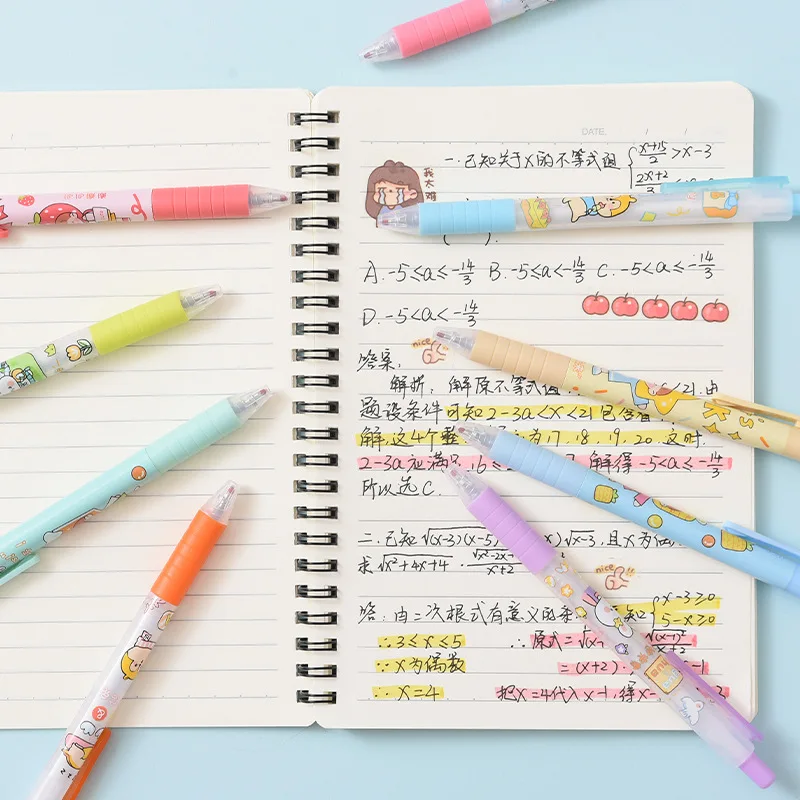 DATE. / /
一.已知关于x的不等式组 { (x+15)/2 > x-3
(2x+2)/3
我太难
( ).
A. -5≤a≤-14/3 B. -5≤a<-14/3 C. -5<a≤-14/3
D. -5<a<-14/3
nice
答案:
解析: 解原不等式组 <21.由
题设条件可知2-3a<x<21包含
解,这4个整 为17.18.19.20.这时.
2-3a应满足 16≤ 解得-5<a≤-14/3
所以选C.
二.已知√(x-3)(x-5) √x-3,且x为偶
求√x²+4x+4 · √x²-2x /x+2
nice
答:由二次根式有意义的条 知{ x-3≥0
5-x≥0
∵3≤x≤5 ∴原式=√(x √(x-1)²/x+2
∵x为偶数 =(x+2)· -1
∴x=4 把x=4代入x-1,得x- 3